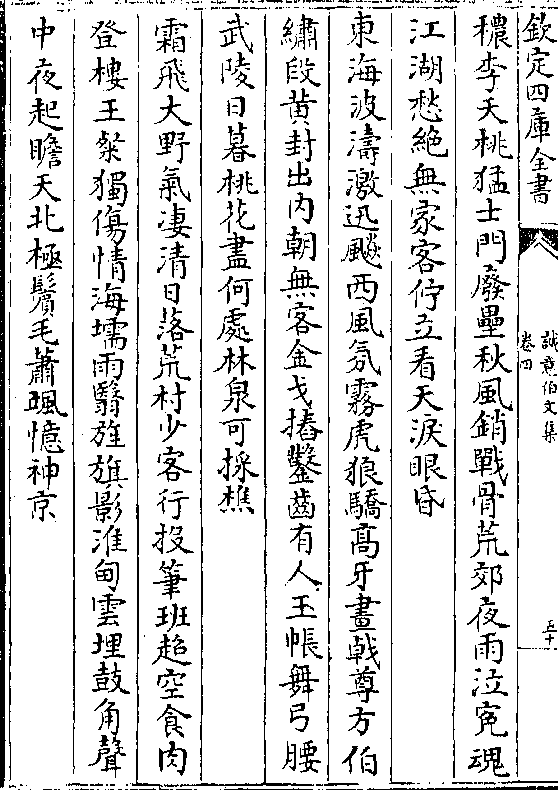 欽定四庫全書
誠意伯文集
卷四
五十
穠李夭桃猛士門廢壘秋風銷戰骨荒郊夜雨泣寃魂
江湖愁絶無家客佇立看天淚眼昏
東海波濤激迅飈西風氛霧虎狼驕髙牙畫㦸尊方伯
繡段黄封出内朝無客金戈摏鑿齒有人玉帳舞弓腰
武陵日暮桃花盡何處林泉可採樵
霜飛大野氣凄清日落荒村少客行投筆班超空食肉
登樓王粲獨傷情海壖雨翳旌旗影淮甸雲埋鼓角聲
中夜起瞻天北極鬢毛蕭颯憶神京